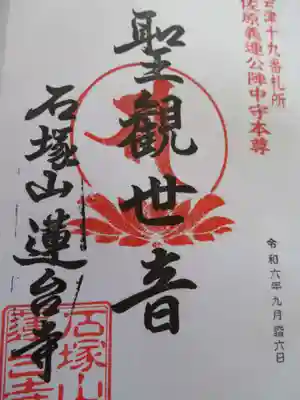 会津十九番札所
佐原義連公陣中守本尊
聖觀世音
石塚山蓮台寺
令和六年九月廿六日
石塚山
蓮台寺